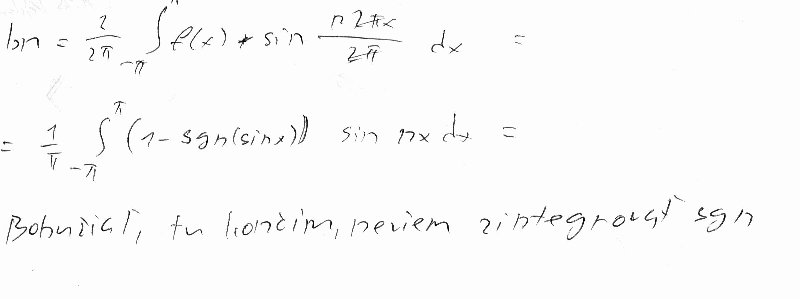 bn = 2/2π ∫_{-π}^{π} f(x) * sin n2πx/2π dx =
= 1/π ∫_{-π}^{π} (1 - sgn(sinx)) sin nx dx =
Bohužiaľ, tu končím, neviem zintegrovať sgn